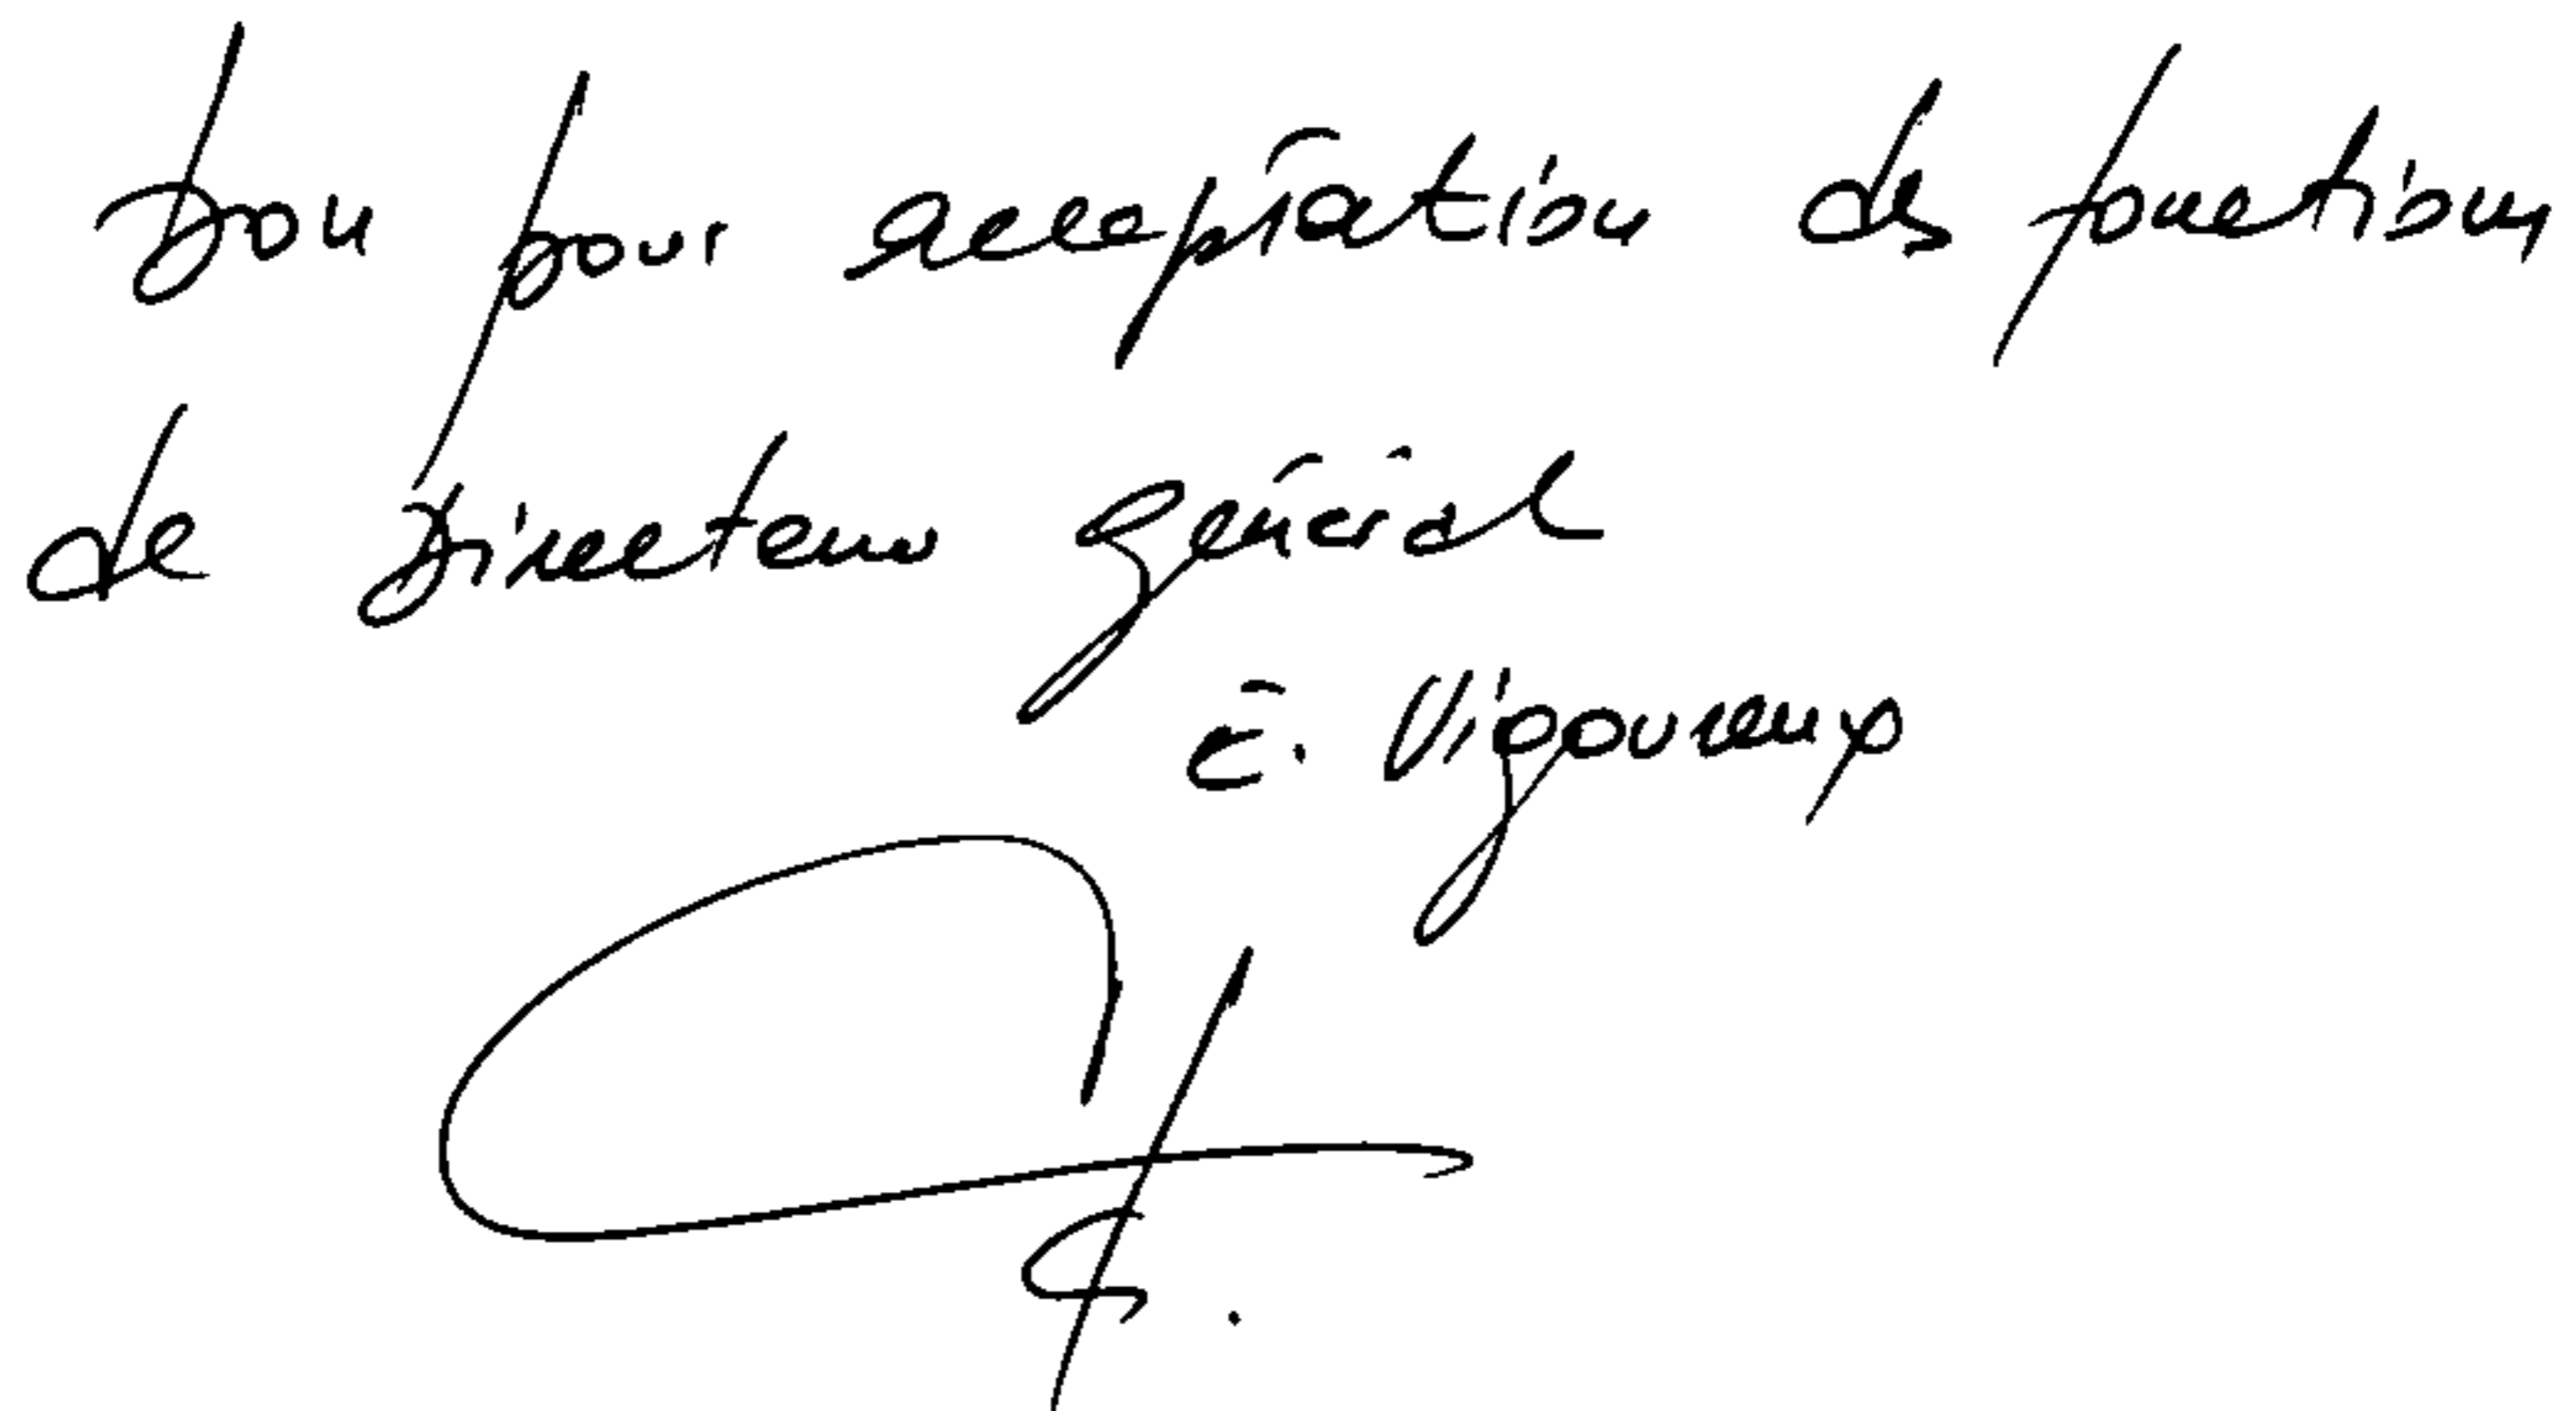 Bon pour acceptation des fonctions
de Directeur général
E. Vigoureux